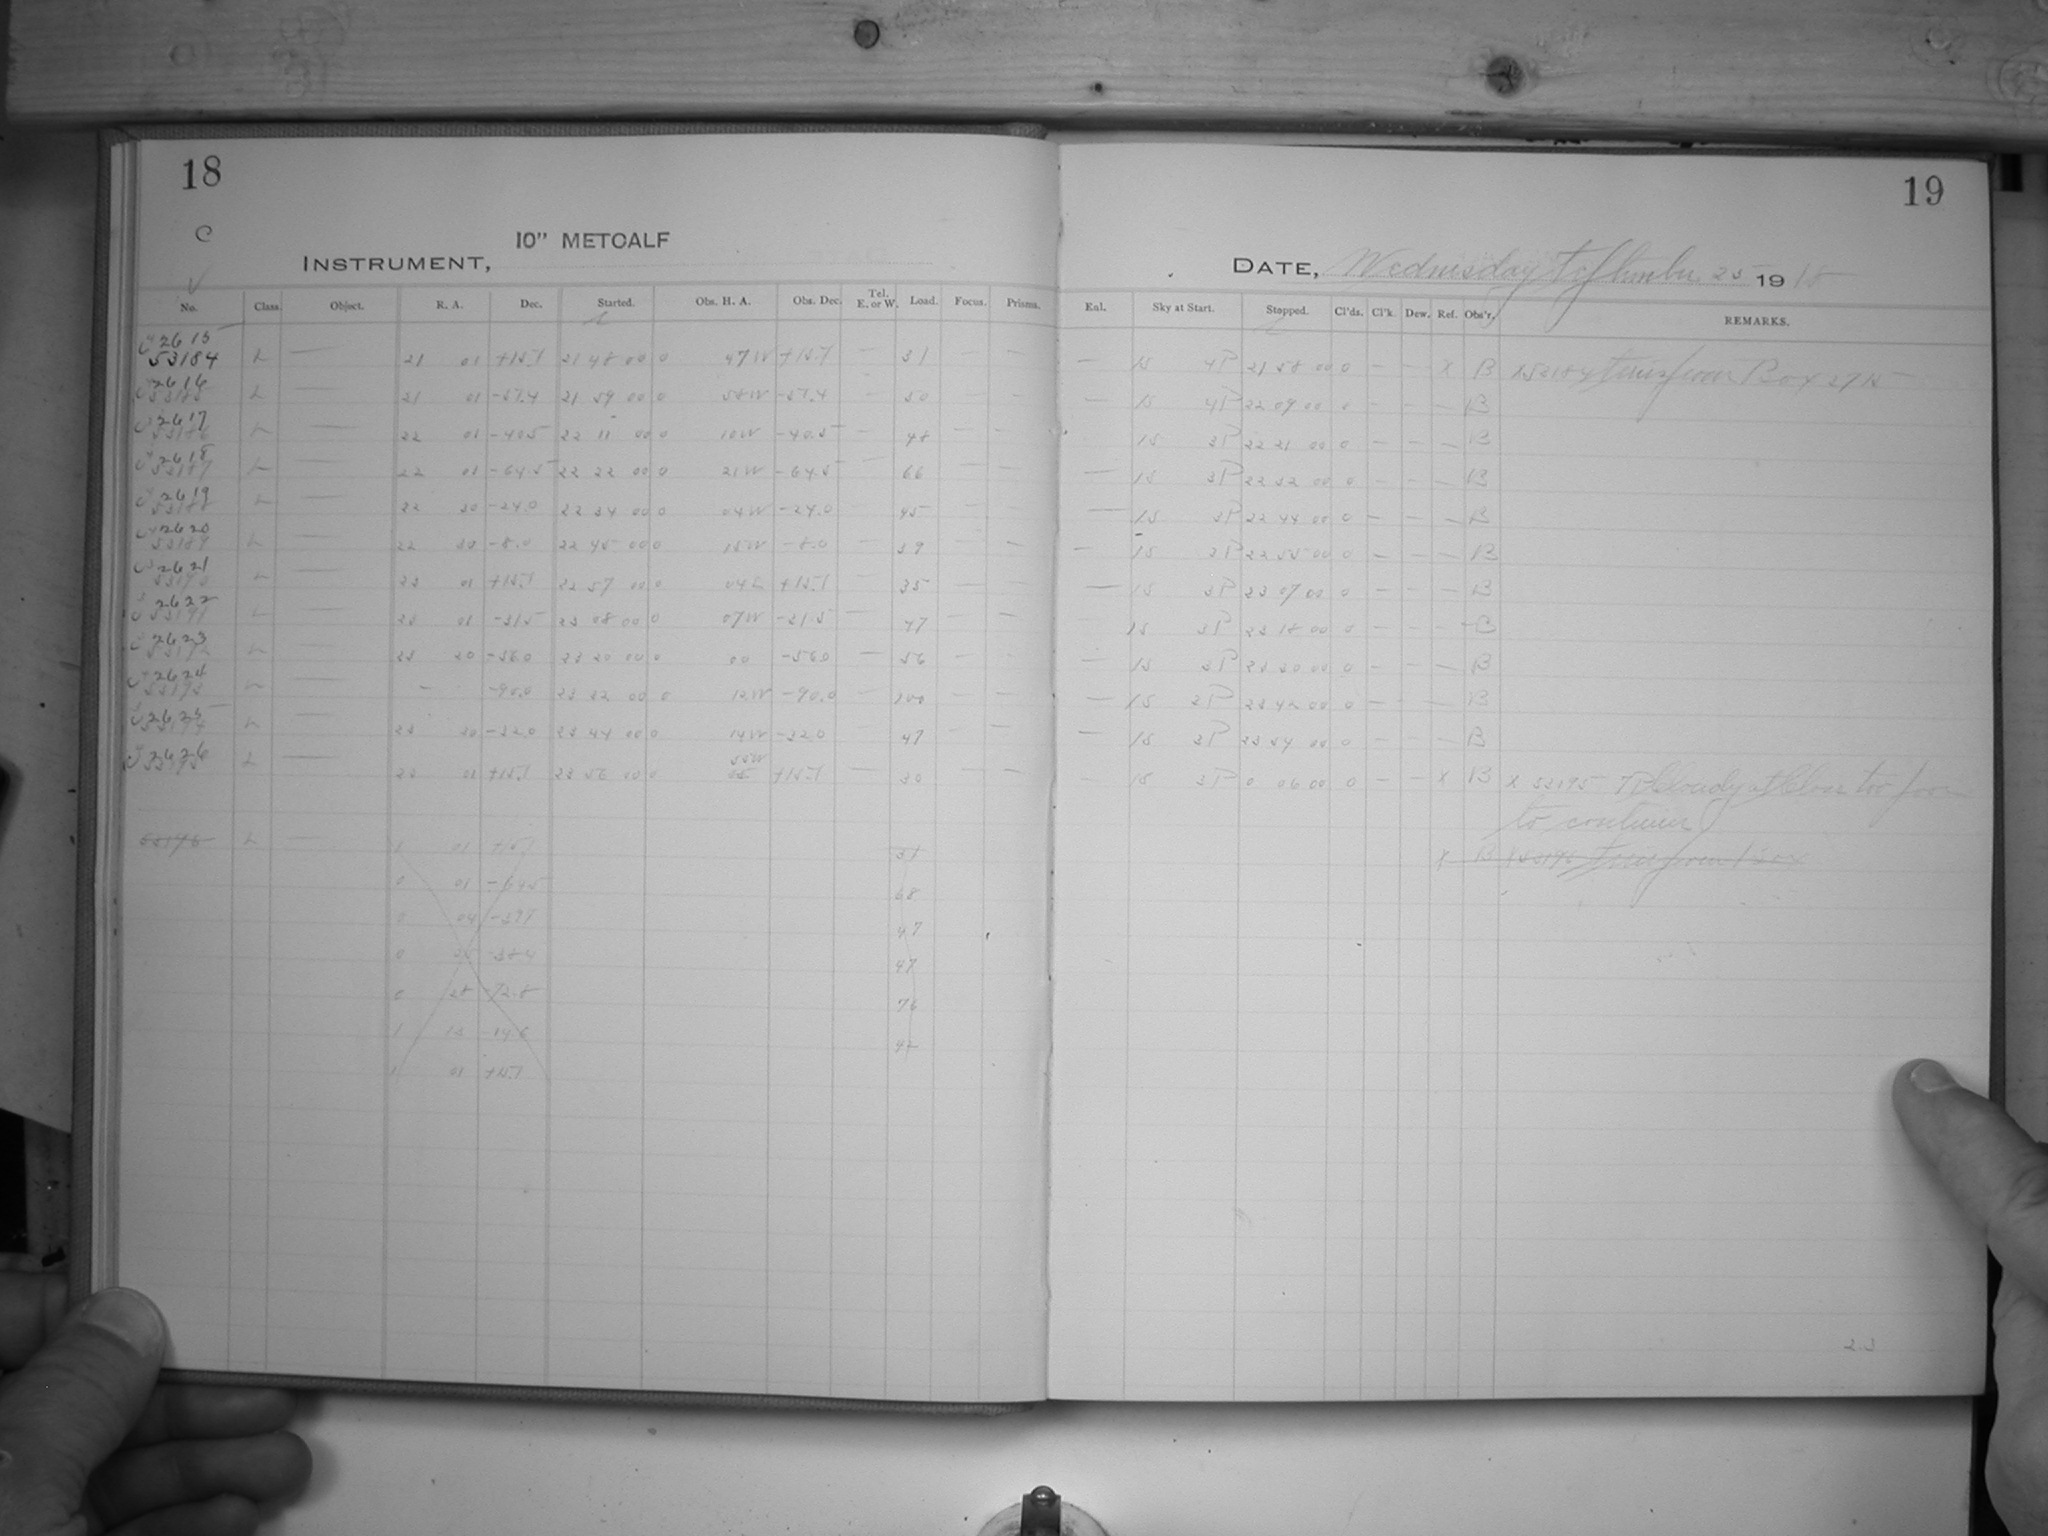 18
C
10" METCALF
INSTRUMENT,
No. Class. Object. R. A. Dec. Started. Obs. H. A. Obs. Dec. Tel. E. or W. Load. Focus. Prisms.
2615
53184 L — 21 01 +15.1 21 48 00 0 47 W +15.1 — 31 — —
2616
53185 L — 21 01 -57.4 21 59 00 0 58 W -57.4 — 50 — —
2617
53186 L — 22 01 -40.5 22 11 00 0 10 W -40.5 — 48 — —
2618
53187 L — 22 01 -64.5 22 22 00 0 21 W -64.5 — 66 — —
2619
53188 L — 22 30 -24.0 22 34 00 0 04 W -24.0 45 — —
2620
53189 L — 22 30 -8.0 22 45 00 0 15 W -8.0 — 39 — —
2621
53190 L — 23 01 +15.1 22 57 00 0 04 E +15.1 35 — —
2622
53191 L — 23 01 -31.5 23 08 00 0 07 W -31.5 — 47 — —
2623
53192 L — 23 20 -56.0 23 20 00 0 00 -56.0 — 56 — —
2624
53193 L — - -90.0 23 32 00 0 12 W -90.0 — 100 — —
2625
53194 L — 23 30 -32.0 23 44 00 0 14 W -32.0 47 - —
2626
53195 L — 23 01 +15.1 23 56 00 0 55 W +15.1 — 30 — —
53196 L — 1 01 +15.1 31
0 01 -64.5 68
0 04 47
0 47
0 28 -72.8 76
1 -14.6 42
1 01 +15.1
19
DATE, Wednesday September 25 1918
Eul. Sky at Start. Stopped. Cl'ds. Cl'k. Dew. Ref. Obs'r. REMARKS.
— 15 4P 21 58 00 0 — — X B X53184 Box 27 15
— 15 4P 22 09 00 0 — — — B
15 3P 22 21 00 0 — — — B
— 15 3P 22 32 00 0 — — — B
— 15 3P 22 44 00 0 — — — B
— 15 3P 22 55 00 0 — — — B
— 15 3P 23 07 00 0 — — — B
15 3P 23 18 00 0 — — — B
— 15 3P 23 30 00 0 — — — B
— 15 3P 23 42 00 0 — — — B
— 15 3P 23 54 00 0 — — — B
— 15 3P 0 06 00 0 — — X B X 53195 Cloudy at Close too poor
to continue
X B X53196 Box